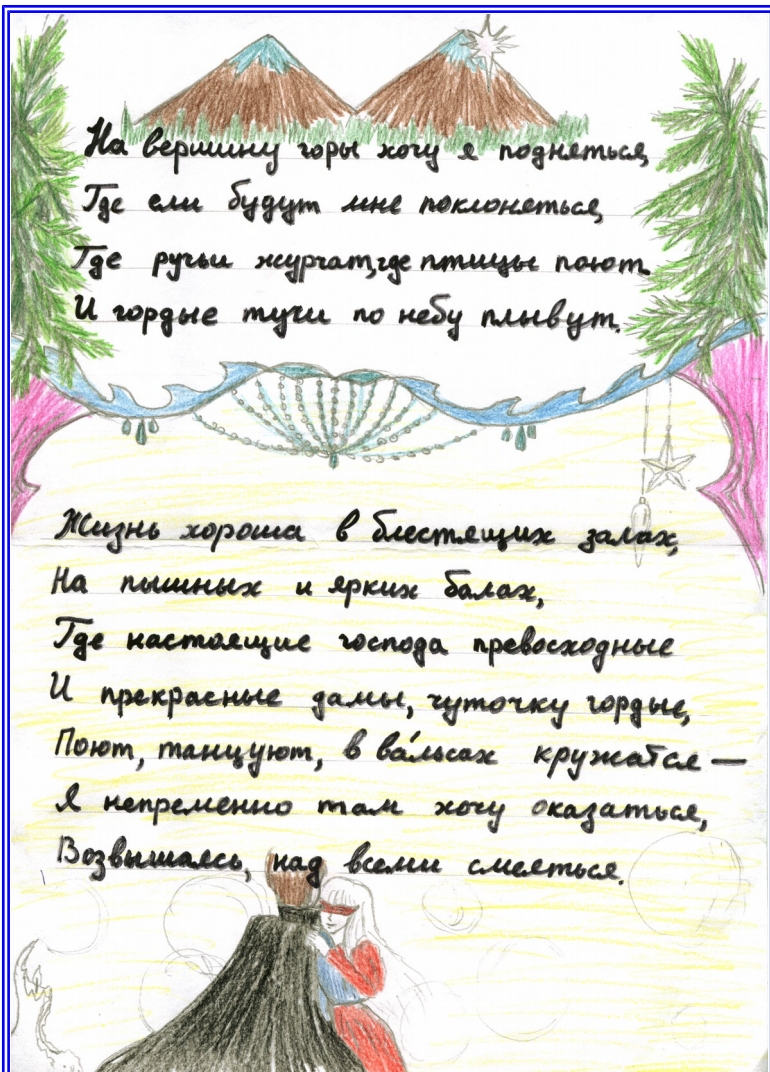 На вершину горы хочу я подняться,
Где ели будут мне поклоняться,
Где ручьи журчат, где птицы поют
И гордые тучи по небу плывут.
Жизнь хороша в блестящих залах,
На пышных и ярких балах,
Где настоящие господа превосходные
И прекрасные дамы, чуточку гордые,
Поют, танцуют, в ва́льсах кружатся —
Я непременно там хочу оказаться,
Возвышаясь, над всеми смеяться.